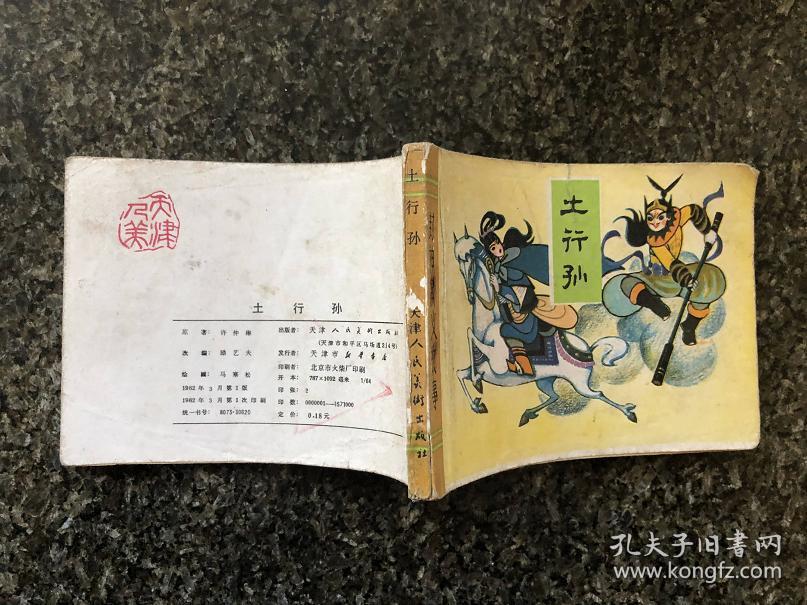 天津人美
土行孙
原著：许仲琳
改编：
绘画：马寒松
1982年3月第1版
1982年3月第1次印刷
统一书号：8073·30820
出版者：天津人民美术出版社
(天津市和平区马场道314号)
发行者：天津市新华书店
印刷者：北京市火柴厂印刷
开本：787×1092毫米 1/64
印张：2
印数：0000001—1571000
定价：0.18元
土行孙
天津人民美術出版社
土行孙
孔夫子旧書网
www.kongfz.com